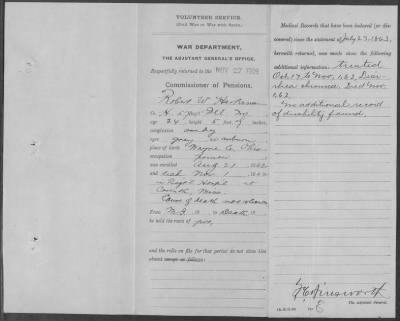 VOLUNTEER SERVICE.
(Civil War or War with Spain.)
WAR DEPARTMENT,
THE ADJUTANT GENERAL'S OFFICE,
Respectfully returned to the NOV 27
Commissioner of Pensions.
Robert W
age 24 height 5 feet, inches
complexion sandy
eyes gray hair auburn
place of birth Wayne Co. Ohio
occupation farmer
was enrolled Aug 21 1862
and died Nov 1
in Regt'l Hosp'l at
Corinth, Miss.
Cause of death not shown
From M.I. to Death
he held the rank of pvt,
and the rolls on file for that period do not show him
absent except as follows:
Medical Records that have been indexed (or dis-
covered) since the statement of July 23, 1863,
herewith returned, was made show the following
additional information: treated
Oct 17 to Nov. 1, 62, Diar-
rhea chronic, Died Nov.
1, 62.
No additional record
of disability found.
F C Ainsworth
The adjutant General.